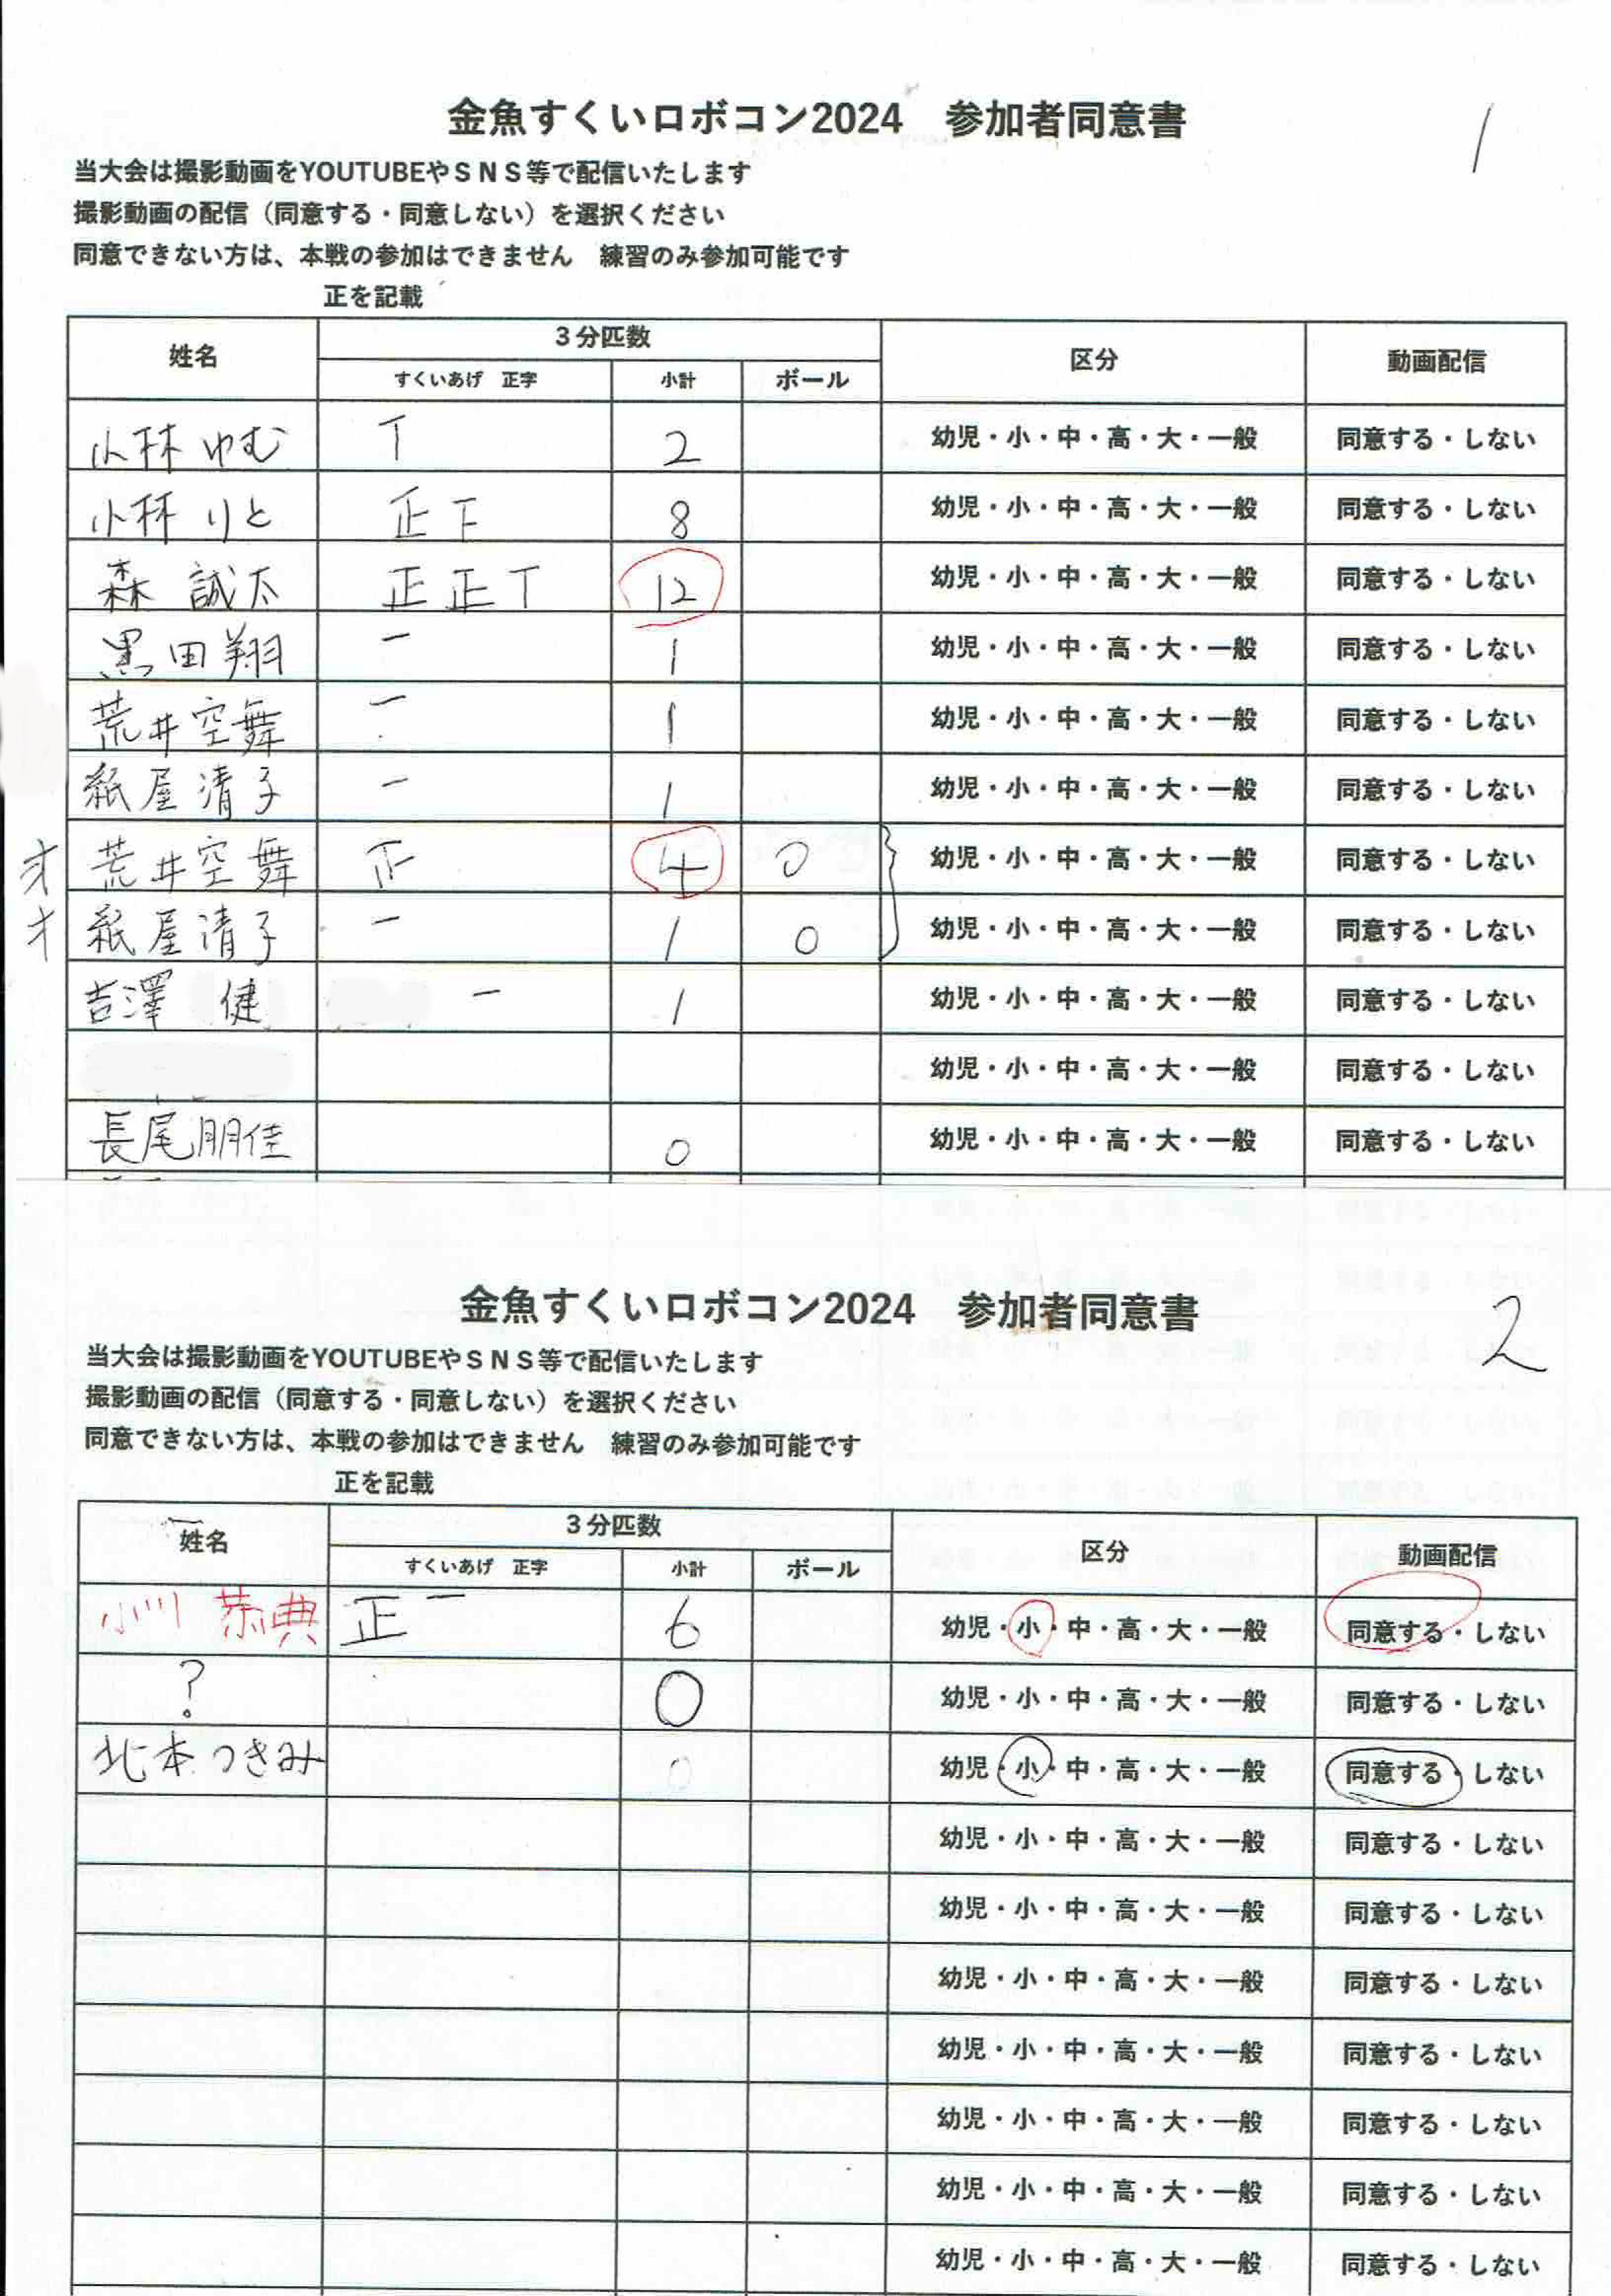 金魚すくいロボコン2024　参加者同意書
1
当大会は撮影動画をYOUTUBEやＳＮＳ等で配信いたします
撮影動画の配信（同意する・同意しない）を選択ください
同意できない方は、本戦の参加はできません　練習のみ参加可能です
正を記載
姓名 ３分匹数 区分 動画配信
すくいあげ　正字 小計 ボール
小林 ゆむ 丅 2 幼児・小・中・高・大・一般 同意する・しない
小林 りと 正下 8 幼児・小・中・高・大・一般 同意する・しない
森 誠太 正正丅 12 幼児・小・中・高・大・一般 同意する・しない
黒田翔 一 1 幼児・小・中・高・大・一般 同意する・しない
荒井空舞 一 1 幼児・小・中・高・大・一般 同意する・しない
紙屋清子 一 1 幼児・小・中・高・大・一般 同意する・しない
荒井空舞 4 0 幼児・小・中・高・大・一般 同意する・しない
紙屋清子 一 1 0 幼児・小・中・高・大・一般 同意する・しない
吉澤 健 一 1 幼児・小・中・高・大・一般 同意する・しない
幼児・小・中・高・大・一般 同意する・しない
長尾朋佳 0 幼児・小・中・高・大・一般 同意する・しない
金魚すくいロボコン2024　参加者同意書
2
当大会は撮影動画をYOUTUBEやＳＮＳ等で配信いたします
撮影動画の配信（同意する・同意しない）を選択ください
同意できない方は、本戦の参加はできません　練習のみ参加可能です
正を記載
姓名 ３分匹数 区分 動画配信
すくいあげ　正字 小計 ボール
小川 恭典 正一 6 幼児・小・中・高・大・一般 同意する・しない
? 0 幼児・小・中・高・大・一般 同意する・しない
北本つきみ 0 幼児・小・中・高・大・一般 同意する・しない
幼児・小・中・高・大・一般 同意する・しない
幼児・小・中・高・大・一般 同意する・しない
幼児・小・中・高・大・一般 同意する・しない
幼児・小・中・高・大・一般 同意する・しない
幼児・小・中・高・大・一般 同意する・しない
幼児・小・中・高・大・一般 同意する・しない
幼児・小・中・高・大・一般 同意する・しない